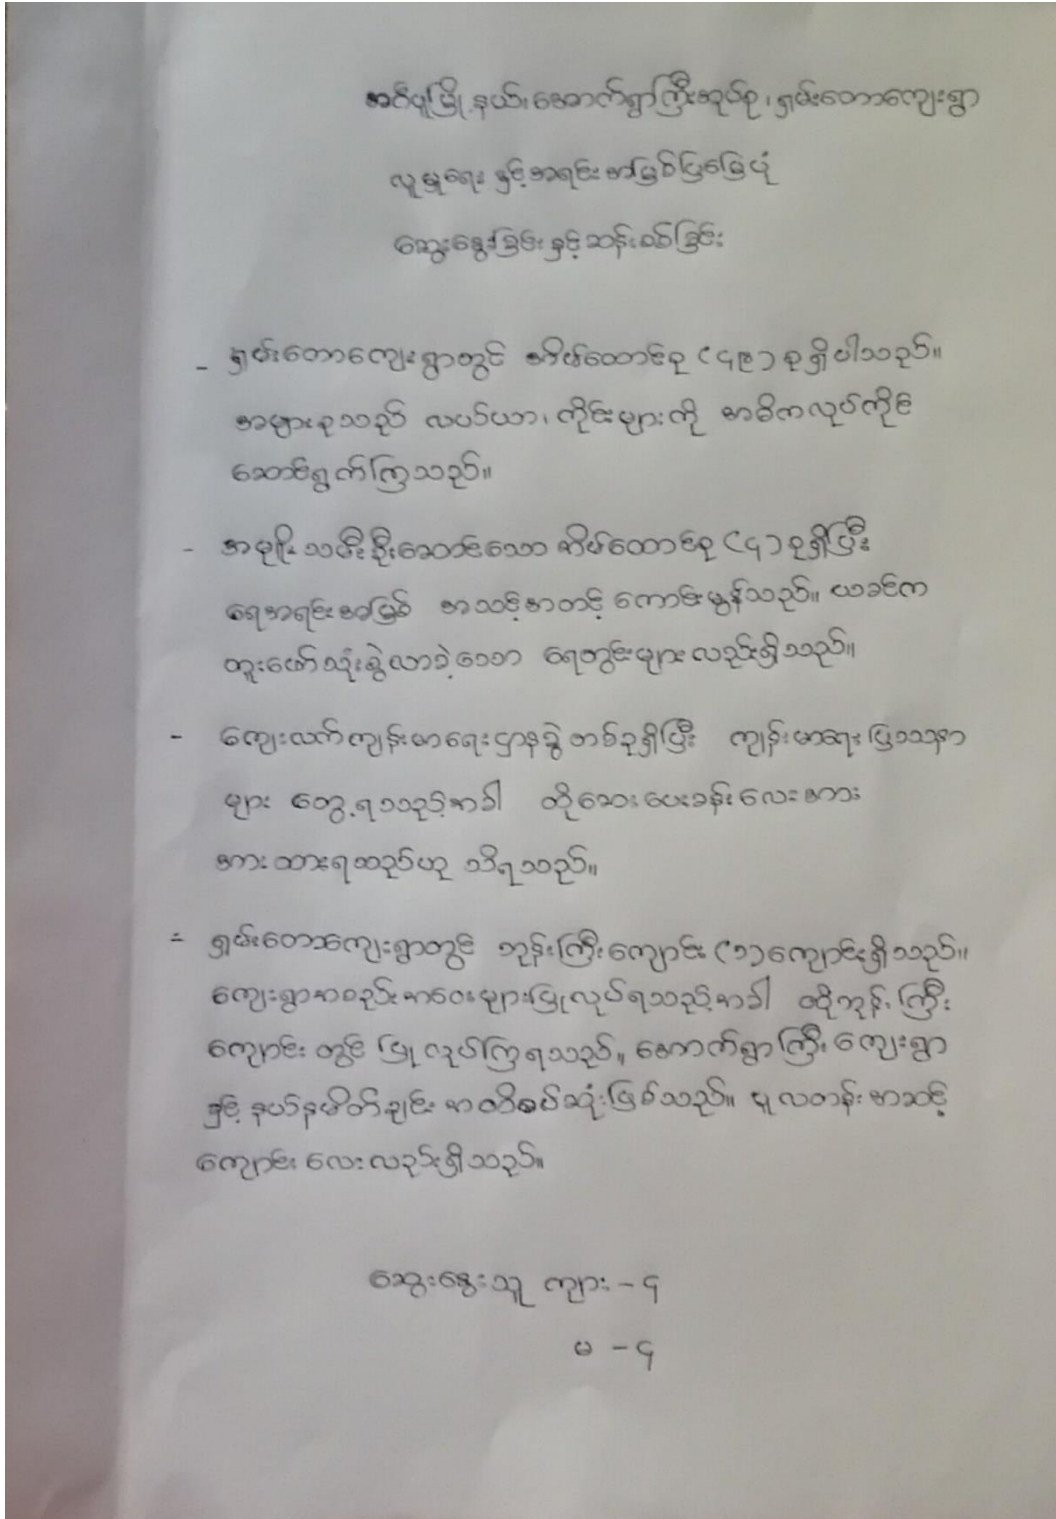 အင်္ဂပူမြို့နယ်၊ အောက်ရွာကြီးအုပ်စု၊ ရှမ်းတောကျေးရွာ
လူမှုရေး နှင့်အရင်းအမြစ်ပြမြေပုံ
ဆွေးနွေးခြင်းနှင့်ဆန်းစစ်ခြင်း
- ရှမ်းတောကျေးရွာတွင် အိမ်ထောင်စု (၄၉) စုရှိပါသည်။
အများစုသည် လယ်ယာ၊ ကိုင်းများကို အဓိကလုပ်ကိုင်
ဆောင်ရွက်ကြသည်။
- အမျိုးသမီးဦးဆောင်သော အိမ်ထောင်စု (၄) စုရှိပြီး
ရေအရင်းအမြစ် အသင့်အတင့် ကောင်းမွန်သည်။ ယခင်က
တူးဖော်သုံးစွဲလာခဲ့သော ရေတွင်းများလည်းရှိသည်။
- ကျေးလက်ကျန်းမာရေးဌာနခွဲ တစ်ခုရှိပြီး ကျန်းမာရေးပြဿနာ
များ တွေ့ရသည့်အခါ ထိုဆေးပေးခန်းလေးအား
အားထားရသည်ဟု သိရသည်။
- ရှမ်းတောကျေးရွာတွင် ဘုန်းကြီးကျောင်း (၁) ကျောင်းရှိသည်။
ကျေးရွာအစည်းအဝေးများပြုလုပ်ရသည့်အခါ ထိုဘုန်းကြီး
ကျောင်းတွင် ပြုလုပ်ကြရသည်။ အောက်ရွာကြီး ကျေးရွာ
နှင့် နယ်နမိတ်ချင်း အထိစပ်ဆုံးဖြစ်သည်။ မူလတန်းအဆင့်
ကျောင်းလေးလည်းရှိသည်။
ဆွေးနွေးသူ ကျား - ၄
မ - ၄